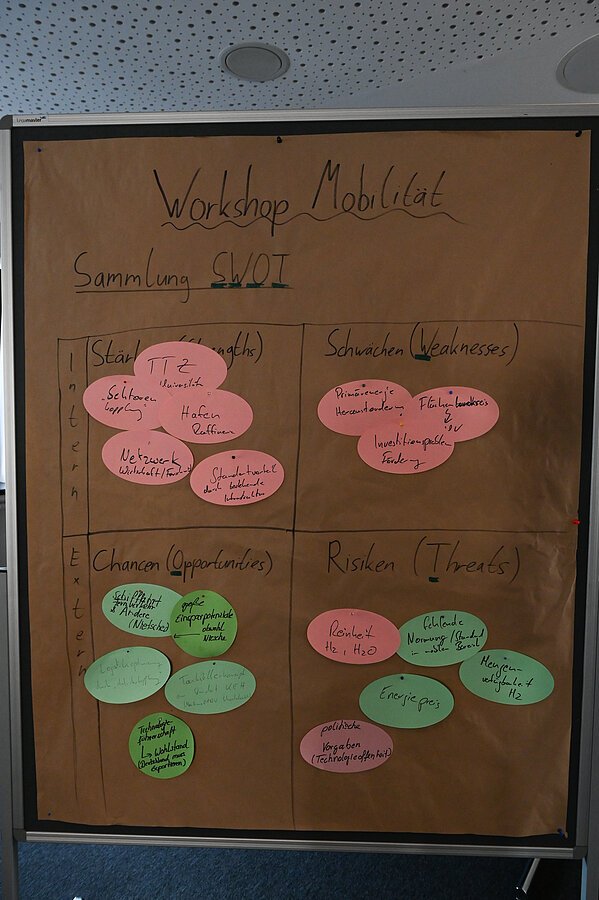 Legamaster
Workshop Mobilität
Sammlung SWOT
Intern
Stärk (Strengths)
TTZ
Universität
"Sektoren
kopplung"
Hafen
Raffinerie
Netzwerk
Wirtschaft/Forschung
Standortvorteil
durch bestehende
Infrastruktur
Schwächen (Weaknesses)
Primärenergie
Herausforderung
Flächen
Investitionsproblem
Förderung
Extern
Chancen (Opportunities)
Schifffahrt
& Andere
(Nietsche)
große
Einsparpotentiale
obwohl
Nische
Technologie-
führerschaft
↳ Wohlstand
(Deutschland muss
exportieren)
Risiken (Threats)
Reinheit
H2, H2O
fehlende
Normung/Standard
in Bereich
Mengen-
verfügbarkeit
H2
Energiepreis
politische
Vorgaben
(Technologieoffenheit)